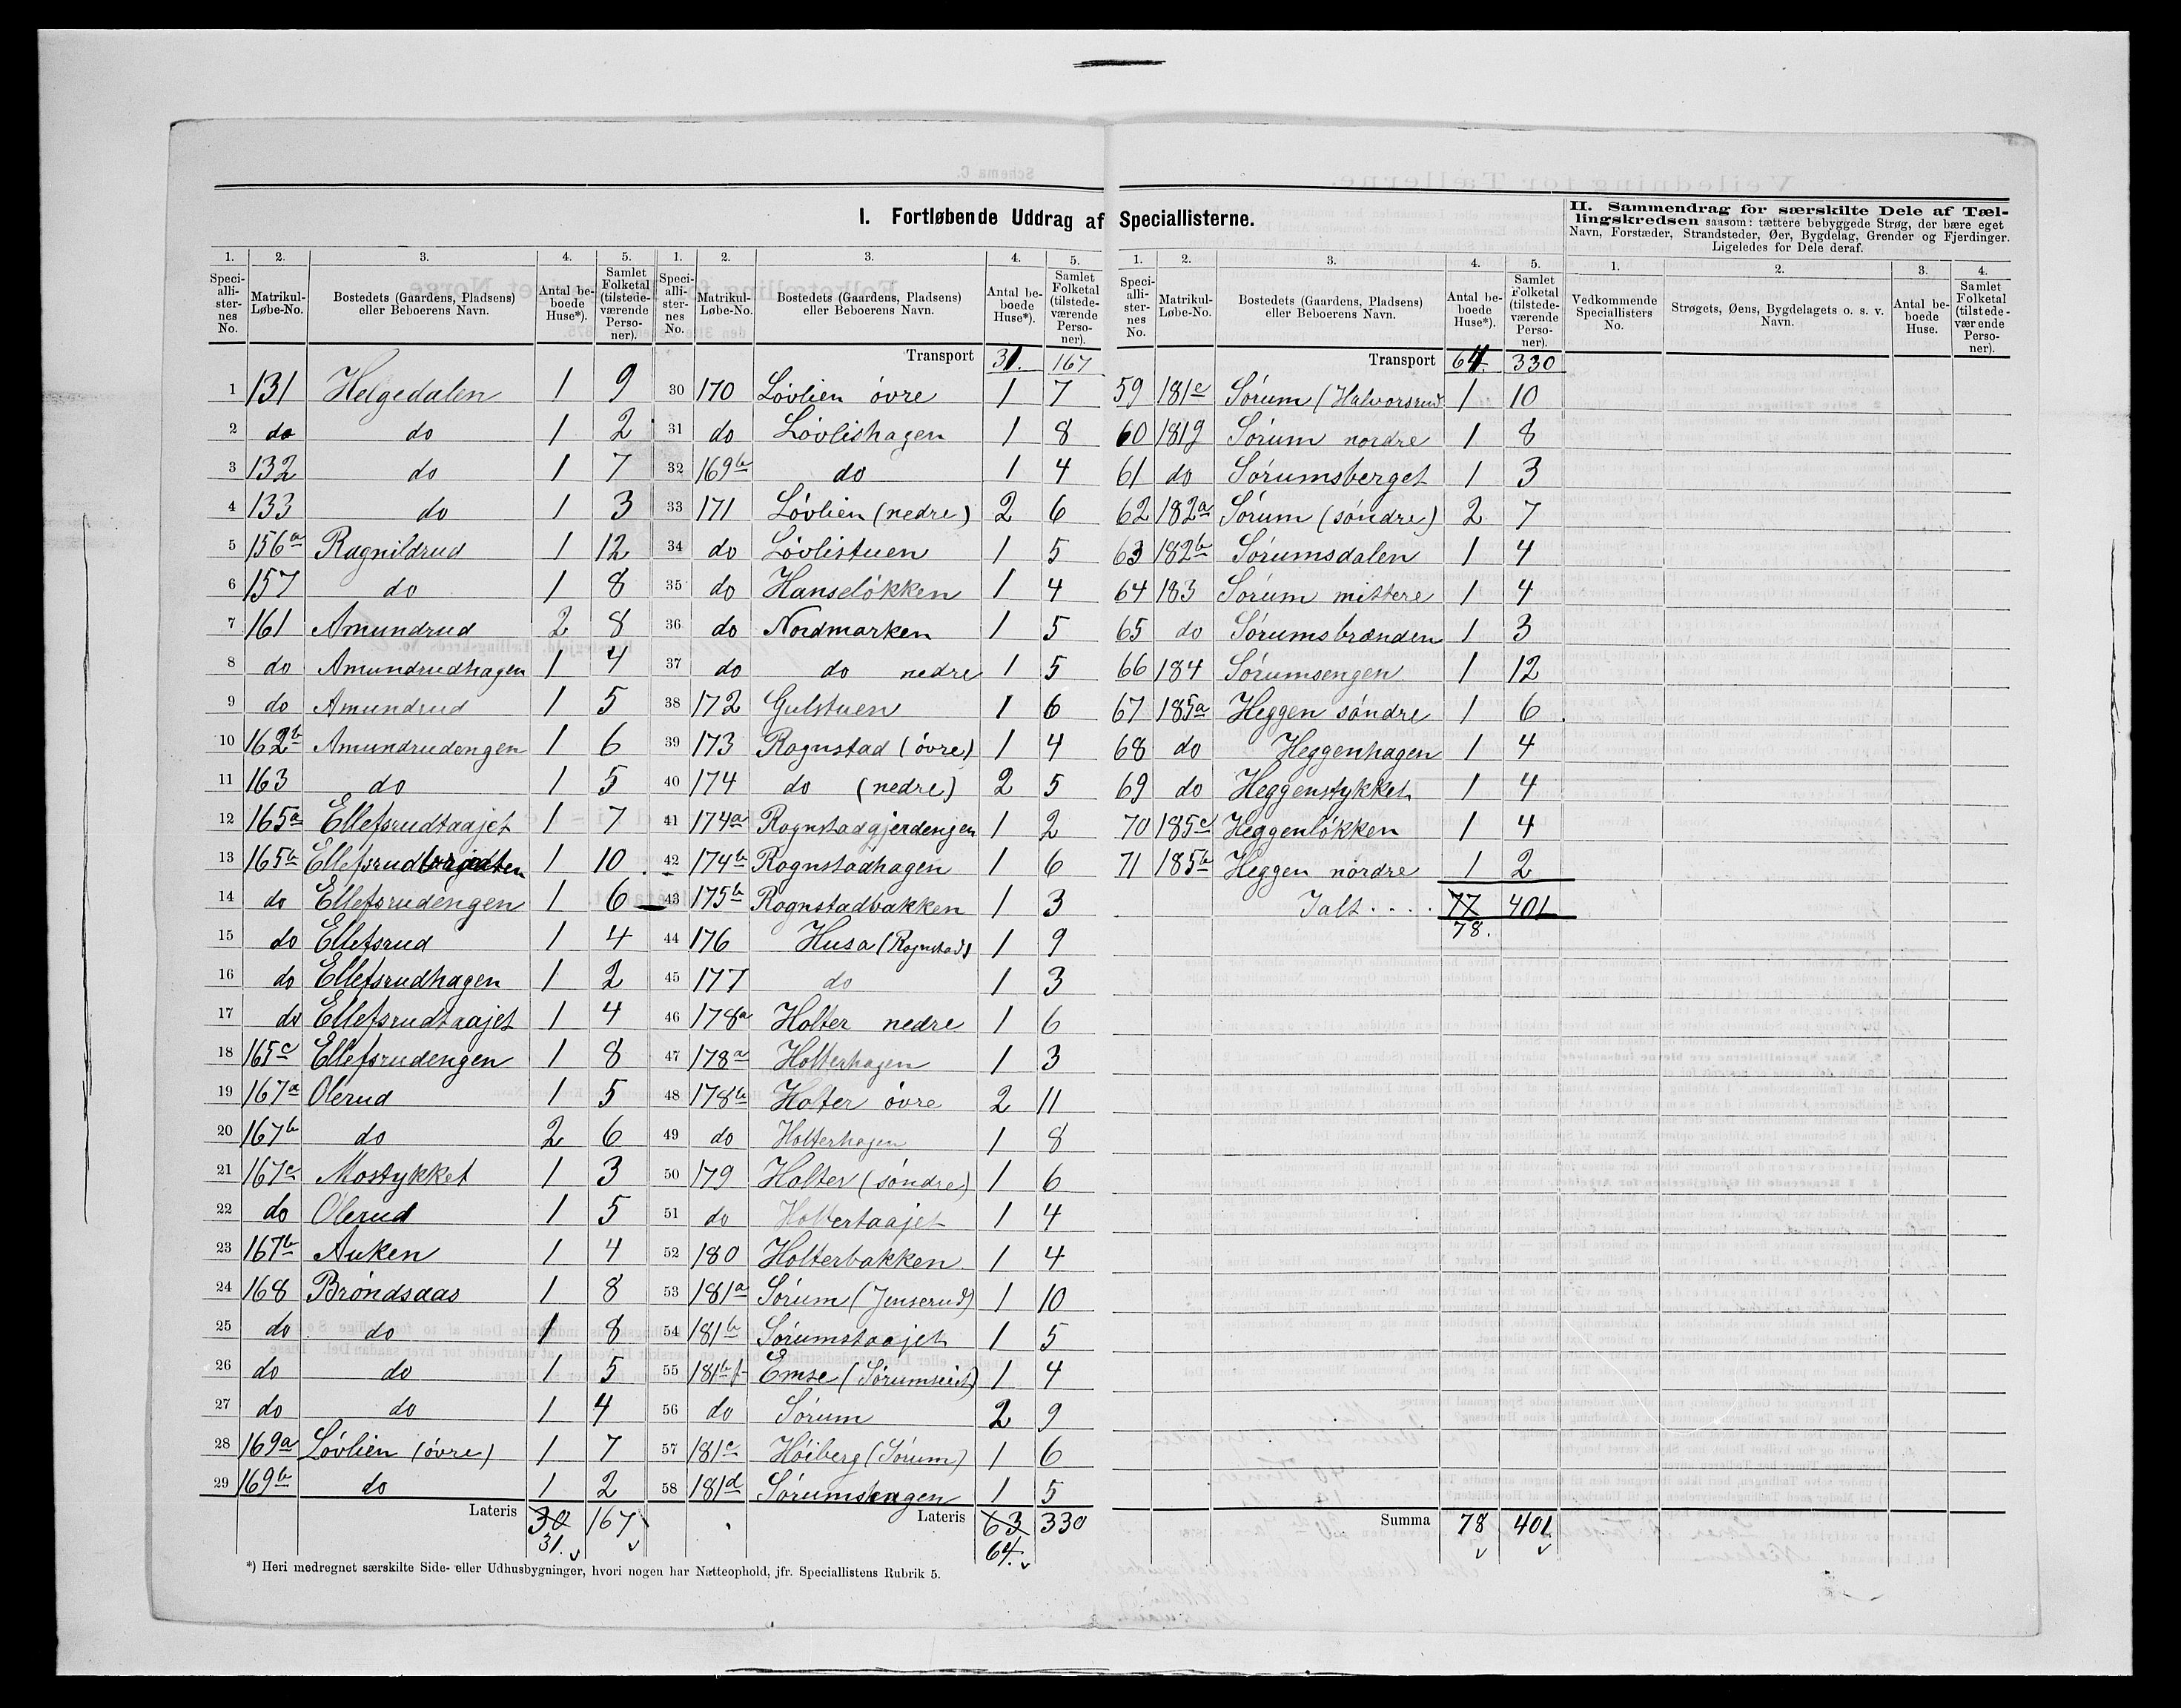 I. Fortløbende Uddrag af Speciallisterne.
1. 2. 3. 4. 5.
Speciallisternes No. Matrikul-Løbe-No. Bostedets (Gaardens, Pladsens) eller Beboerens Navn. Antal beboede Huse*). Samlet Folketal (tilstedeværende Personer).
1 131 Helgedalen 1 9
2 do do 1 2
3 132 do 1 7
4 133 do 1 3
5 156a Ragnildrud 1 12
6 157 do 1 8
7 161 Amundrud 2 8
8 do Amundrudhagen 1 4
9 do Amundrud 1 5
10 162b Amundrudengen 1 6
11 163 do 1 5
12 165a Ellefsrudtaajet 1 7
13 165b 1 10
14 do Ellefsrudengen 1 6
15 do Ellefsrud 1 4
16 do Ellefsrudhagen 1 2
17 do Ellefsrudtaajet 1 4
18 165c Ellefsrudengen 1 8
19 167a Olerud 1 5
20 167b do 2 6
21 167c Mostykket 1 3
22 do Olerud 1 5
23 167b Auken 1 4
24 168 Bröndsaas 1 8
25 do do 1 8
26 do do 1 5
27 do do 1 4
28 169a Lövlien (övre) 1 7
29 169b do 1 2
Lateris 30 167
31.
1. 2. 3. 4. 5.
Speciallisternes No. Matrikul-Løbe-No. Bostedets (Gaardens, Pladsens) eller Beboerens Navn. Antal beboede Huse*). Samlet Folketal (tilstedeværende Personer).
Transport 31. 167
30 170 Lövlien övre 1 7
31 do Lövlishagen 1 8
32 169b do 1 4
33 171 Lövlien (nedre) 2 6
34 do Lövlistuen 1 5
35 do Hanselökken 1 4
36 do Nordmarken 1 5
37 do do nedre 1 5
38 172 Gulstuen 1 6
39 173 Rognstad (övre) 1 4
40 174 do (nedre) 2 5
41 174a Rognstadgjerdengen 1 2
42 174b Rognstadhagen 1 6
43 175b Rognstadbakken 1 3
44 176 Husa (Rognstad) 1 9
45 177 do 1 3
46 178a Holter nedre 1 6
47 178a Holterhagen 1 3
48 178b Holter övre 2 11
49 do Holterhagen 1 8
50 179 Holter (söndre) 1 6
51 do Holtertaajet 1 4
52 180 Holterbakken 1 4
53 181a Sörum (Jenserud) 1 10
54 181b Sörumstaajet 1 5
55 181b f Emse (Sörumseiet) 1 4
56 do Sörum 2 9
57 181c Höiberg (Sörum) 1 6
58 181d 1 5
Lateris 63 330
64.
1. 2. 3. 4. 5.
Speciallisternes No. Matrikul-Løbe-No. Bostedets (Gaardens, Pladsens) eller Beboerens Navn. Antal beboede Huse*). Samlet Folketal (tilstedeværende Personer).
Transport 64. 330
59 181e Sörum (Halvorsrud 1 10
60 181g Sörum nordre 1 8
61 do Sörumsberget 1 3
62 182a Sörum (söndre) 2 7
63 182b Sörumsdalen 1 4
64 183 Sörum mittere 1 4
65 do Sörumsbrænden 1 3
66 184 Sörumsengen 1 12
67 185a Heggen söndre 1 6
68 do Heggenhagen 1 4
69 do Heggenstykket 1 4
70 185c Heggenlökken 1 4
71 185b Heggen nordre 1 2
Ialt.... 77 401
78.
Summa 78 401
II. Sammendrag for særskilte Dele af Tællingskredsen saasom: tættere bebyggede Strøg, der bære eget
Navn, Forstæder, Strandsteder, Øer, Bygdelag, Grender og Fjerdinger.
Ligeledes for Dele deraf.
1. 2. 3. 4.
Vedkommende Speciallisters No. Strøgets, Øens, Bygdelagets o. s. v. Navn. Antal beboede Huse. Samlet Folketal (tilstedeværende Personer).
*) Heri medregnet særskilte Side- eller Udhusbygninger, hvori nogen har Natteophold, jfr. Speciallistens Rubrik 5.